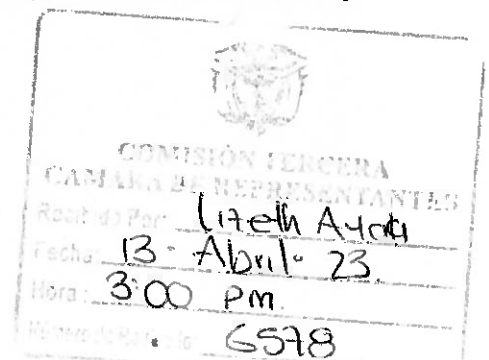 COMISIÓN TERCERA
CAMARA DE REPRESENTANTES
Recibido Por: Lizeth Ayala
Fecha: 13 - Abril - 23.
Hora: 3:00 pm.
6578